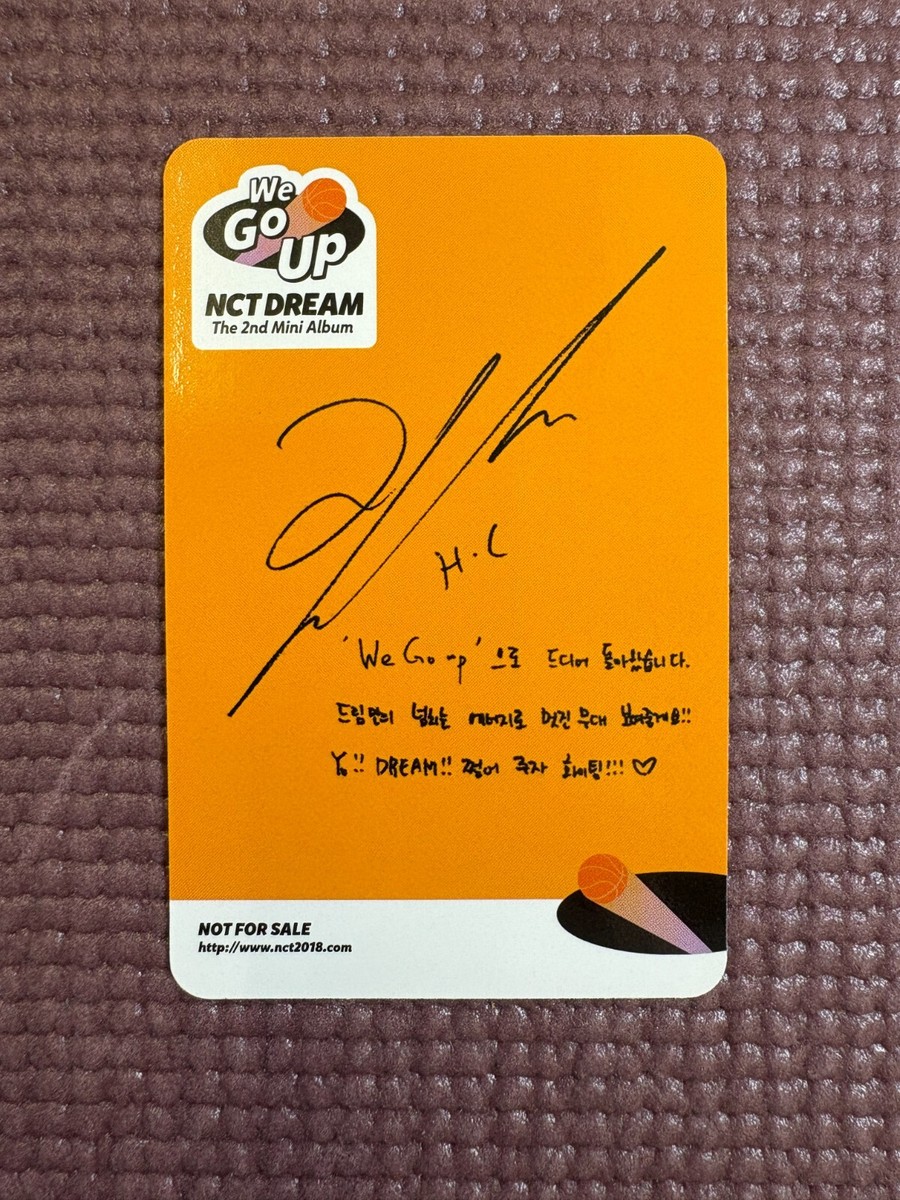 We
Go
Up
NCT DREAM
The 2nd Mini Album
H.C
'We Go up' 으로 드디어 돌아왔습니다.
드림만의 넘치는 에너지로 멋진 무대 보여줄게요!!
Yo!! DREAM!! 찢어 주자 화이팅!!! ♡
NOT FOR SALE
http://www.nct2018.com